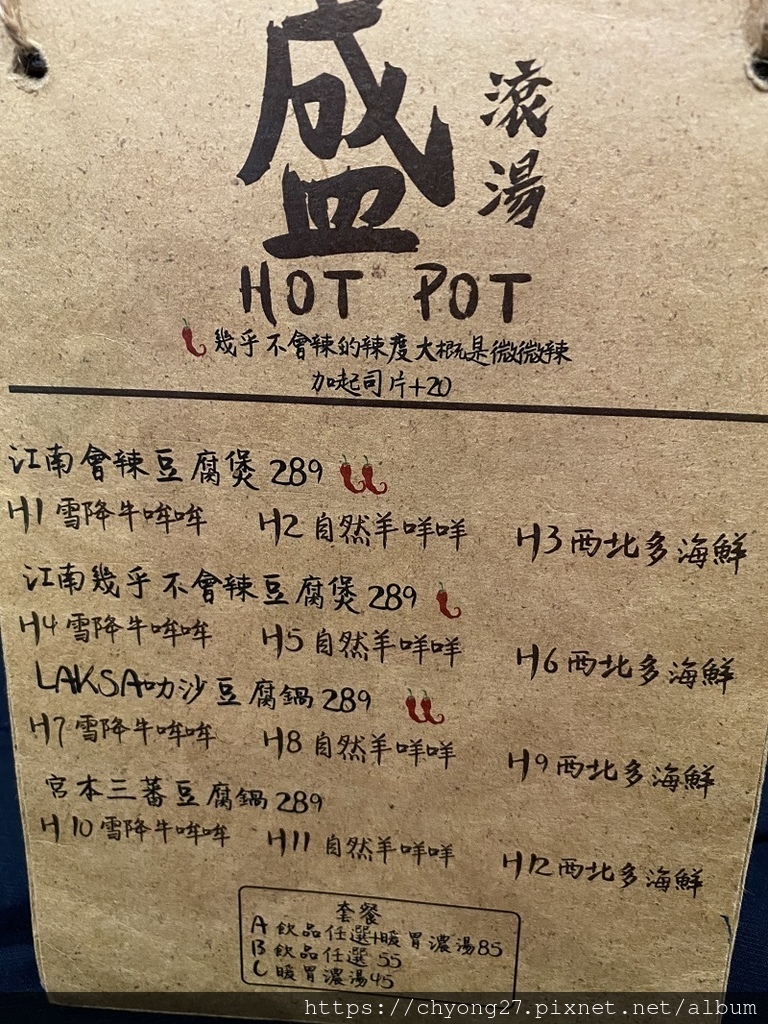 盛
滾湯
HOT POT
幾乎不會辣的辣度大概是微微辣
加起司片+20
江南會辣豆腐煲 289
H1 雪降牛哞哞 H2 自然羊咩咩 H3 西北多海鮮
江南幾乎不會辣豆腐煲 289
H4 雪降牛哞哞 H5 自然羊咩咩 H6 西北多海鮮
LAKSA叻沙豆腐鍋 289
H7 雪降牛哞哞 H8 自然羊咩咩 H9 西北多海鮮
宮本三蕃豆腐鍋 289
H10 雪降牛哞哞 H11 自然羊咩咩 H12 西北多海鮮
套餐
A 飲品任選+暖胃濃湯 85
B 飲品任選 55
C 暖胃濃湯 45
https://chyong27.pixnet.net/album